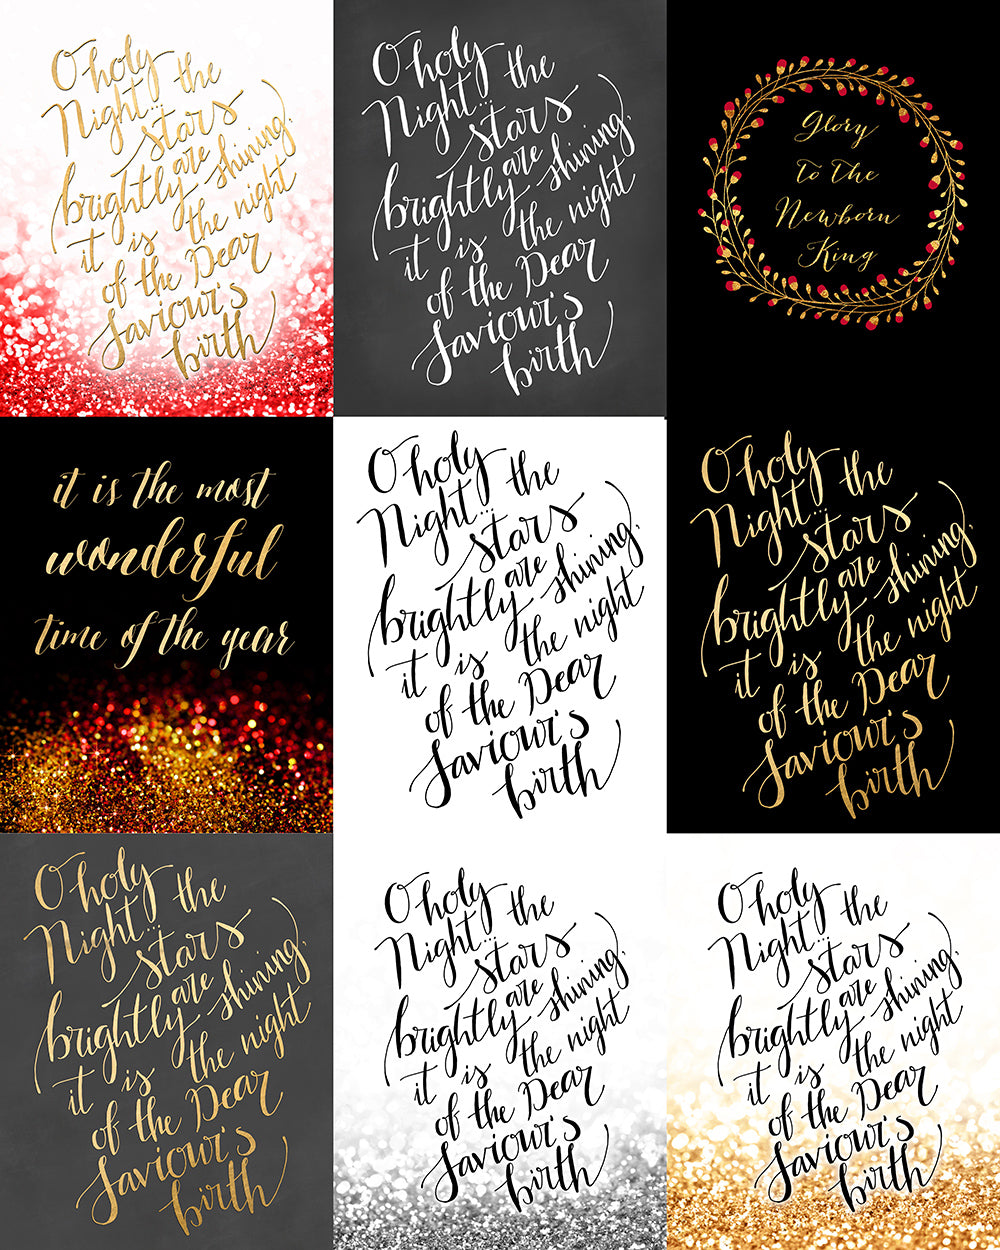 O holy
Night... the
stars
brightly are shining,
it is the night
of the Dear
Saviour's
birth
O holy
Night... the
stars
brightly are shining,
it is the night
of the Dear
Saviour's
birth
Glory
To The
Newborn
King
it is the most
wonderful
time of the year
O holy
Night... the
stars
brightly are shining,
it is the night
of the Dear
Saviour's
birth
O holy
Night... the
stars
brightly are shining,
it is the night
of the Dear
Saviour's
birth
O holy
Night... the
stars
brightly are shining,
it is the night
of the Dear
Saviour's
birth
O holy
Night... the
stars
brightly are shining,
it is the night
of the Dear
Saviour's
birth
O holy
Night... the
stars
brightly are shining,
it is the night
of the Dear
Saviour's
birth